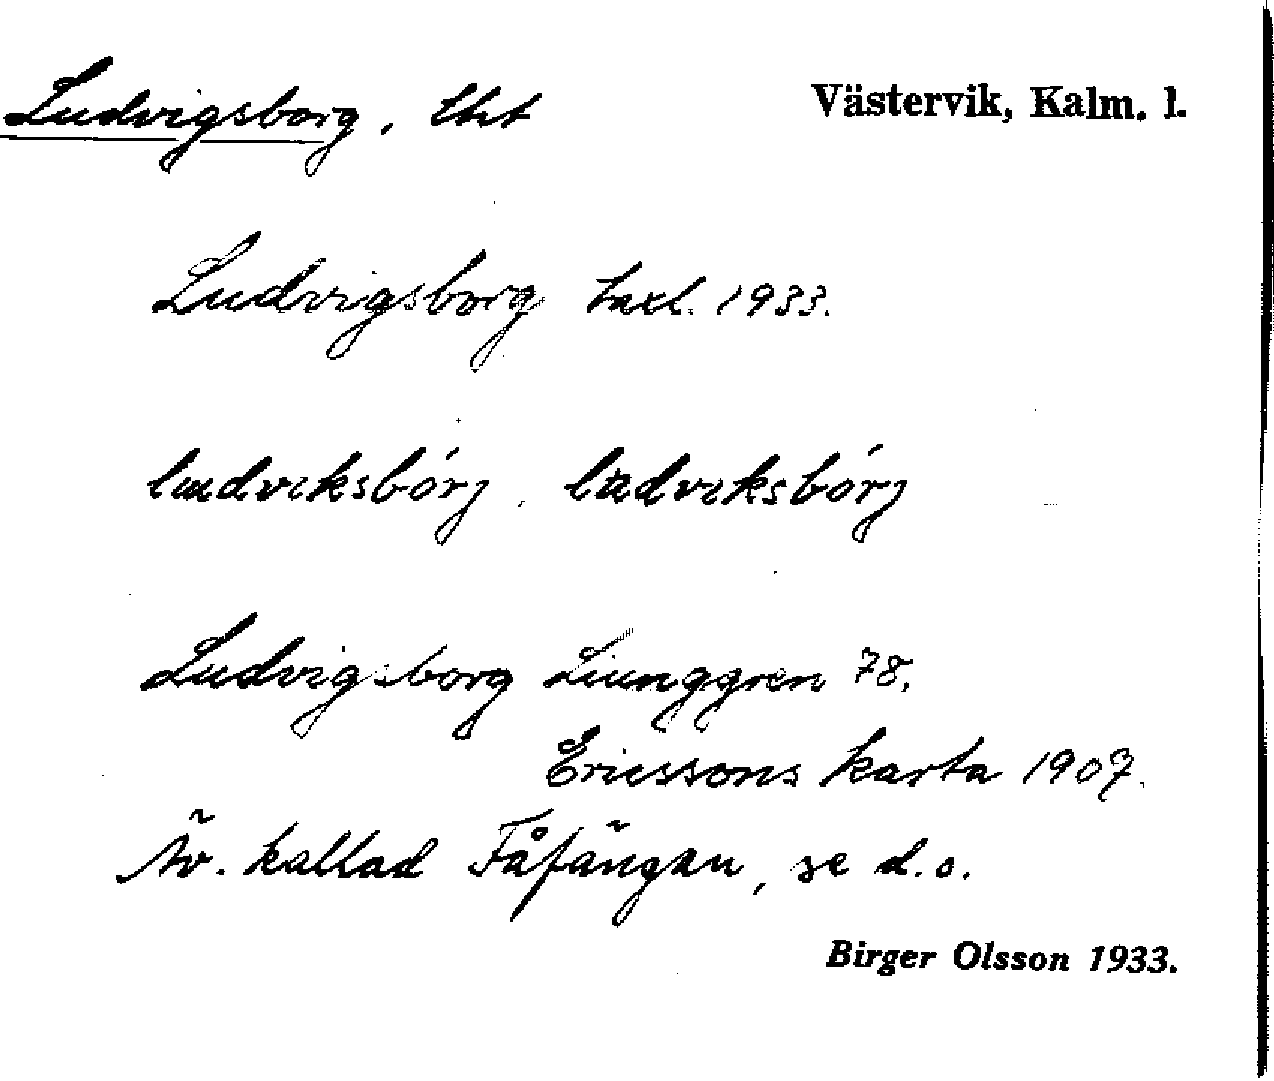 Ludvigsborg, lht Västervik, Kalm. l.
Ludvigsborg taxl. 1933.
ludviksbórj, lu̇dviksbórj
Ludvigsborg Liunggren 78.
Ericssons karta 1907.
Äv. kallad Fåfängan, se d.o.
Birger Olsson 1933.